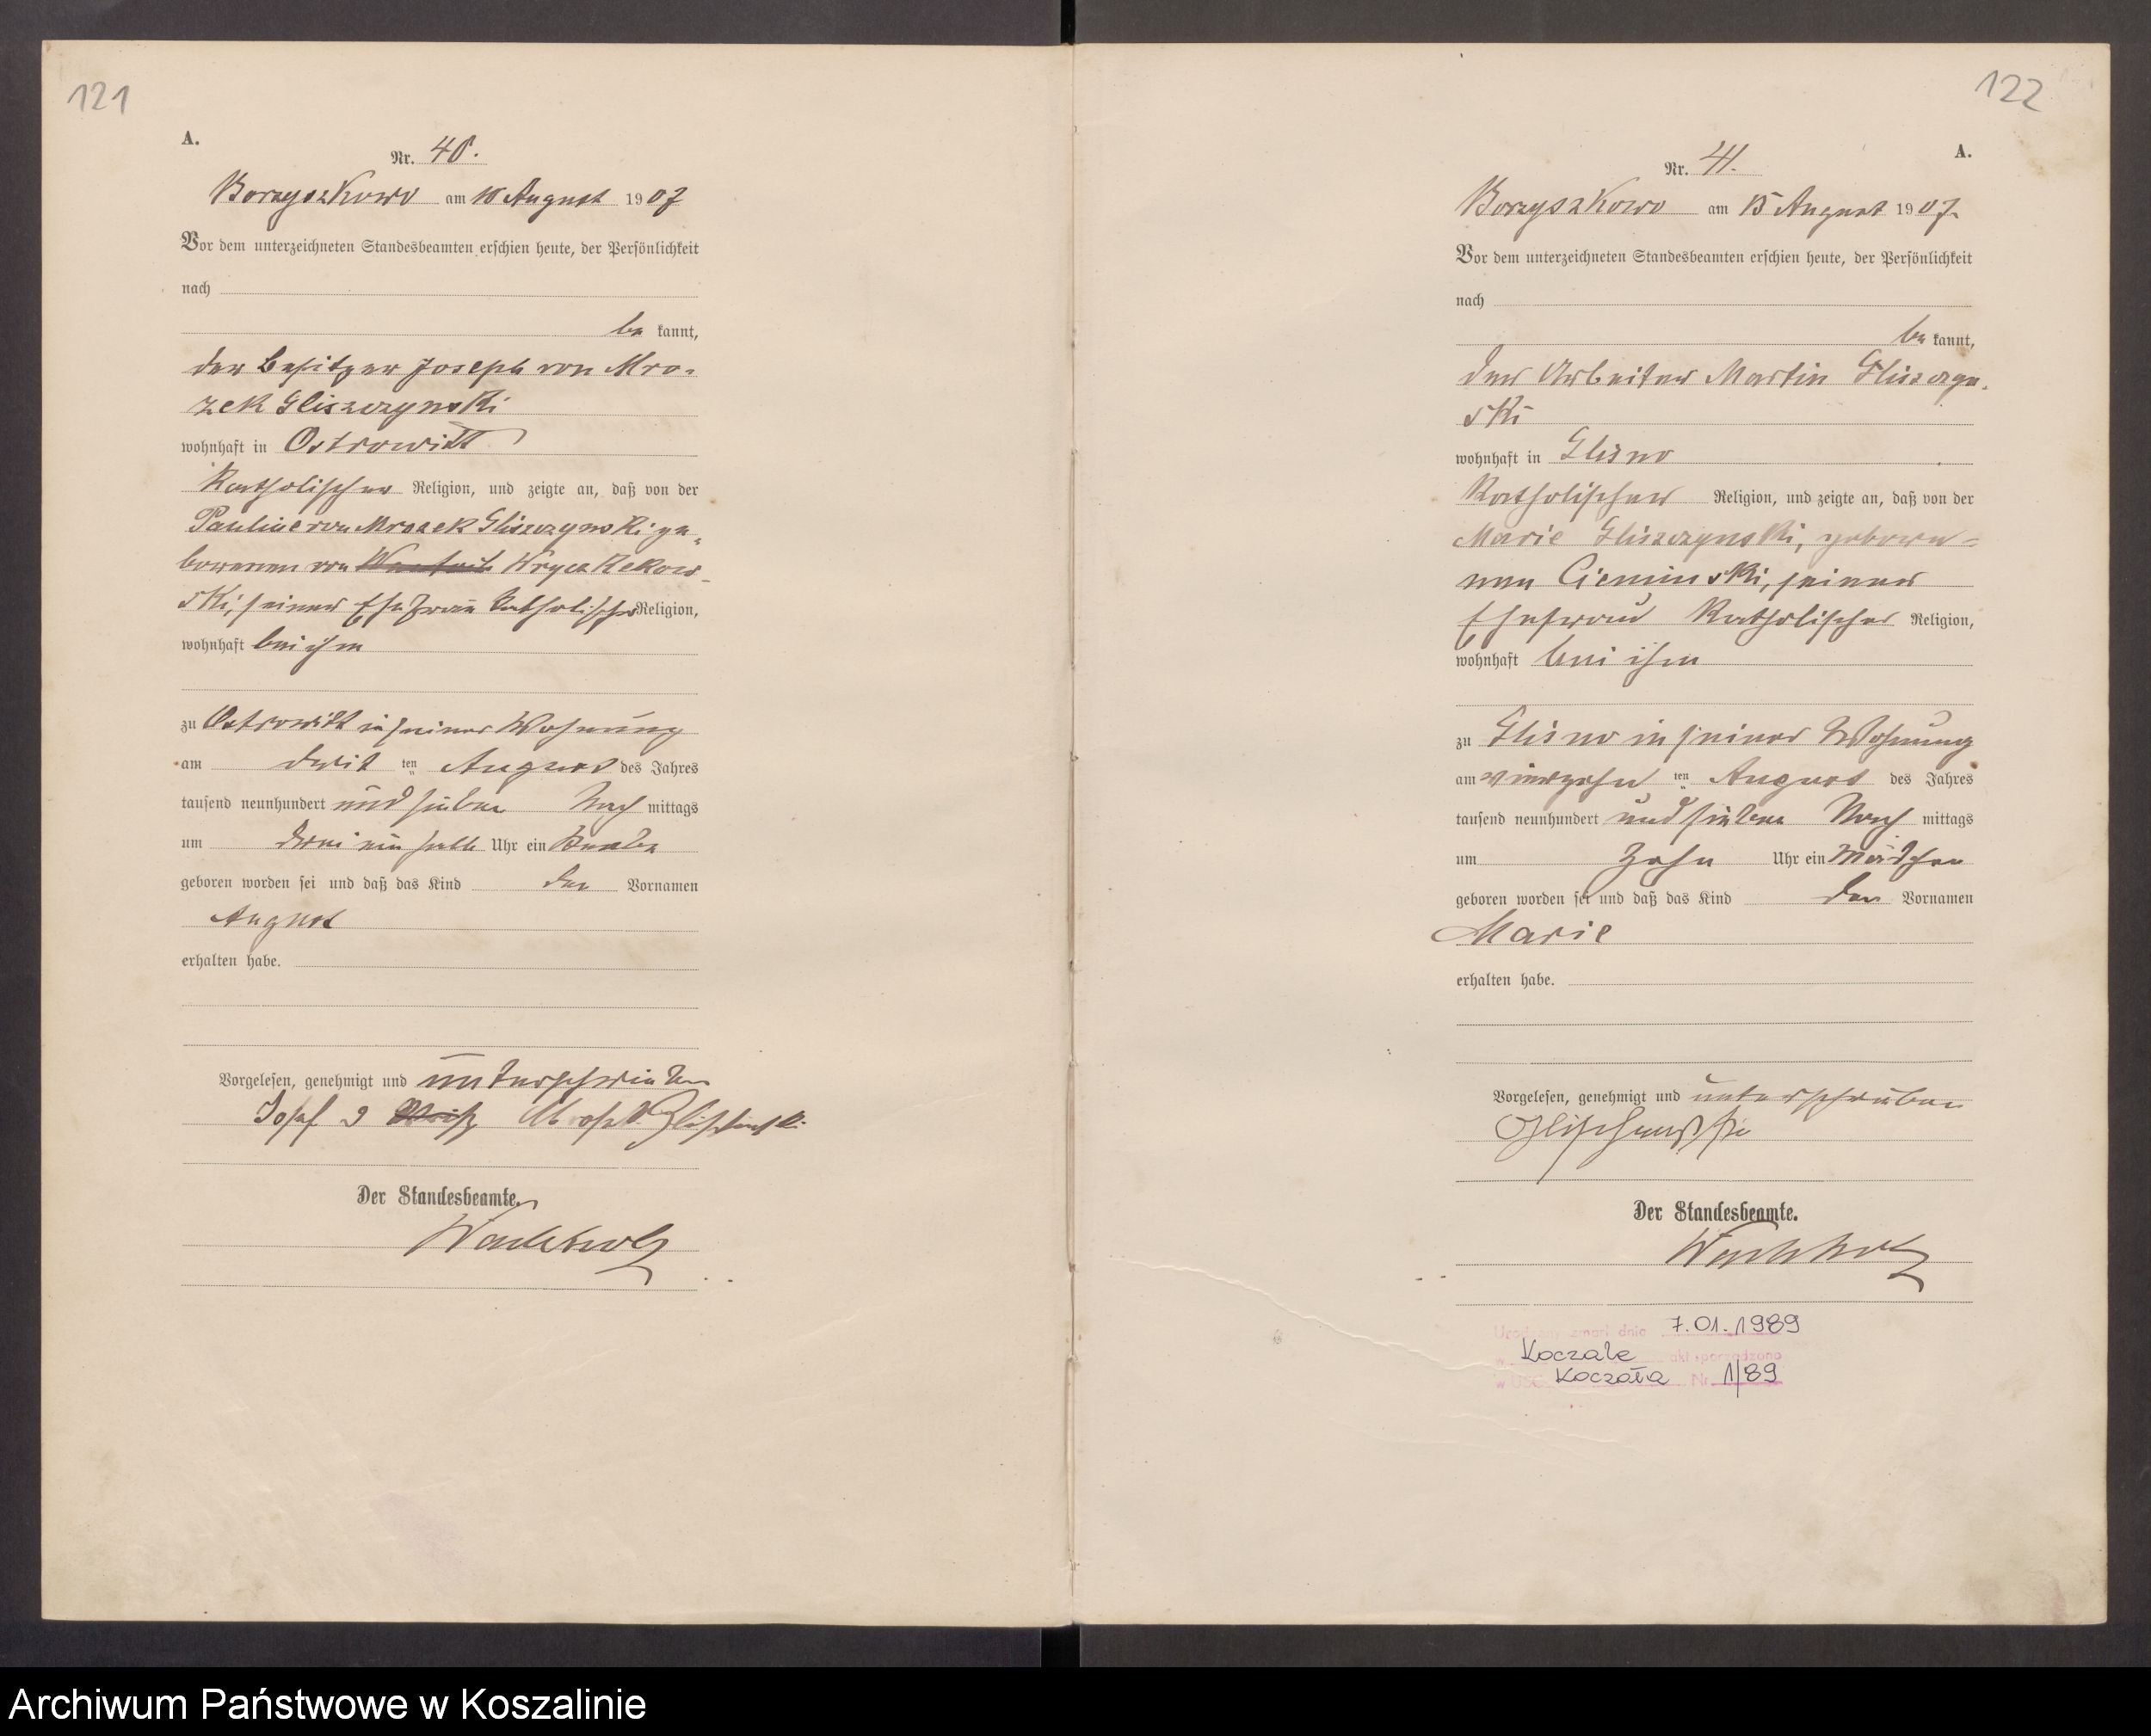 121
A.
Nr. 40.
Borzyszkowo am 10 August 1907
Vor dem unterzeichneten Standesbeamten erschien heute, der Persönlichkeit
nach
be kannt,
der Besitzer Joseph von Mro-
zek Gliszczynski
wohnhaft in Ostrowitt
Katholischer Religion, und zeigte an, daß von der
Pauline von Mrozek Gliszczynski ge-
borenen von Kryca Rekow-
ski, seiner Ehefrau katholischer Religion,
wohnhaft bei ihm
zu Ostrowitt in seiner Wohnung
am dritten August des Jahres
tausend neunhundert und sieben Nach mittags
um drei ein halb Uhr ein Knabe
geboren worden sei und daß das Kind den Vornamen
August
erhalten habe.
Vorgelesen, genehmigt und unterschrieben
Josef Mrosek Glischinski
Der Standesbeamte.
Wachholz
122
A.
Nr. 41.
Borzyszkowo am 15 August 1907
Vor dem unterzeichneten Standesbeamten erschien heute, der Persönlichkeit
nach
be kannt,
der Arbeiter Martin Gliszczyn-
ski
wohnhaft in Glisno
Katholischer Religion, und zeigte an, daß von der
Marie Gliszczynski, gebore-
nen Cieminski, seiner
Ehefrau Katholischer Religion,
wohnhaft bei ihm
zu Glisno in seiner Wohnung
am vierzehn ten August des Jahres
tausend neunhundert und sieben Nach mittags
um zehn Uhr ein Mädchen
geboren worden sei und daß das Kind den Vornamen
Marie
erhalten habe.
Vorgelesen, genehmigt und unterschrieben
Der Standesbeamte.
Wachholz
zmarł dnia 7.01.1989
w Koczale akt sporządzono
w USC Koczała Nr 1/89
Archiwum Państwowe w Koszalinie